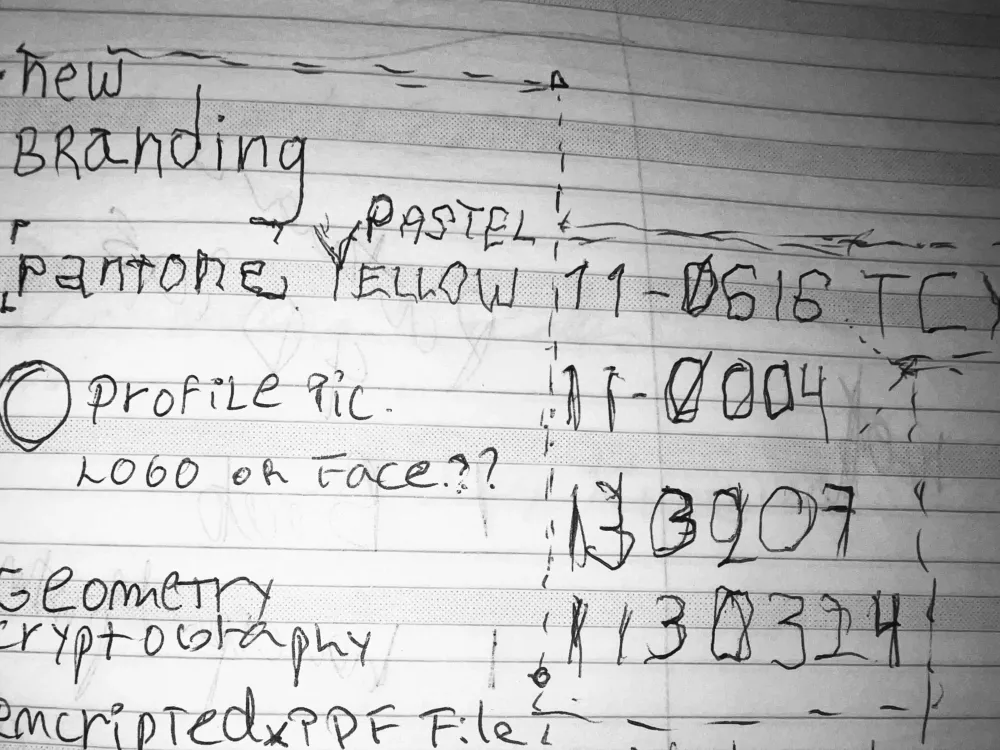 new
BRanding
PASTEL
Pantone YELLOW 11-0616 TCX
11-0004
Profile Pic.
LOGO OR Face.??
133207
1130324
Geometry
cryptography
encripted x PDF File